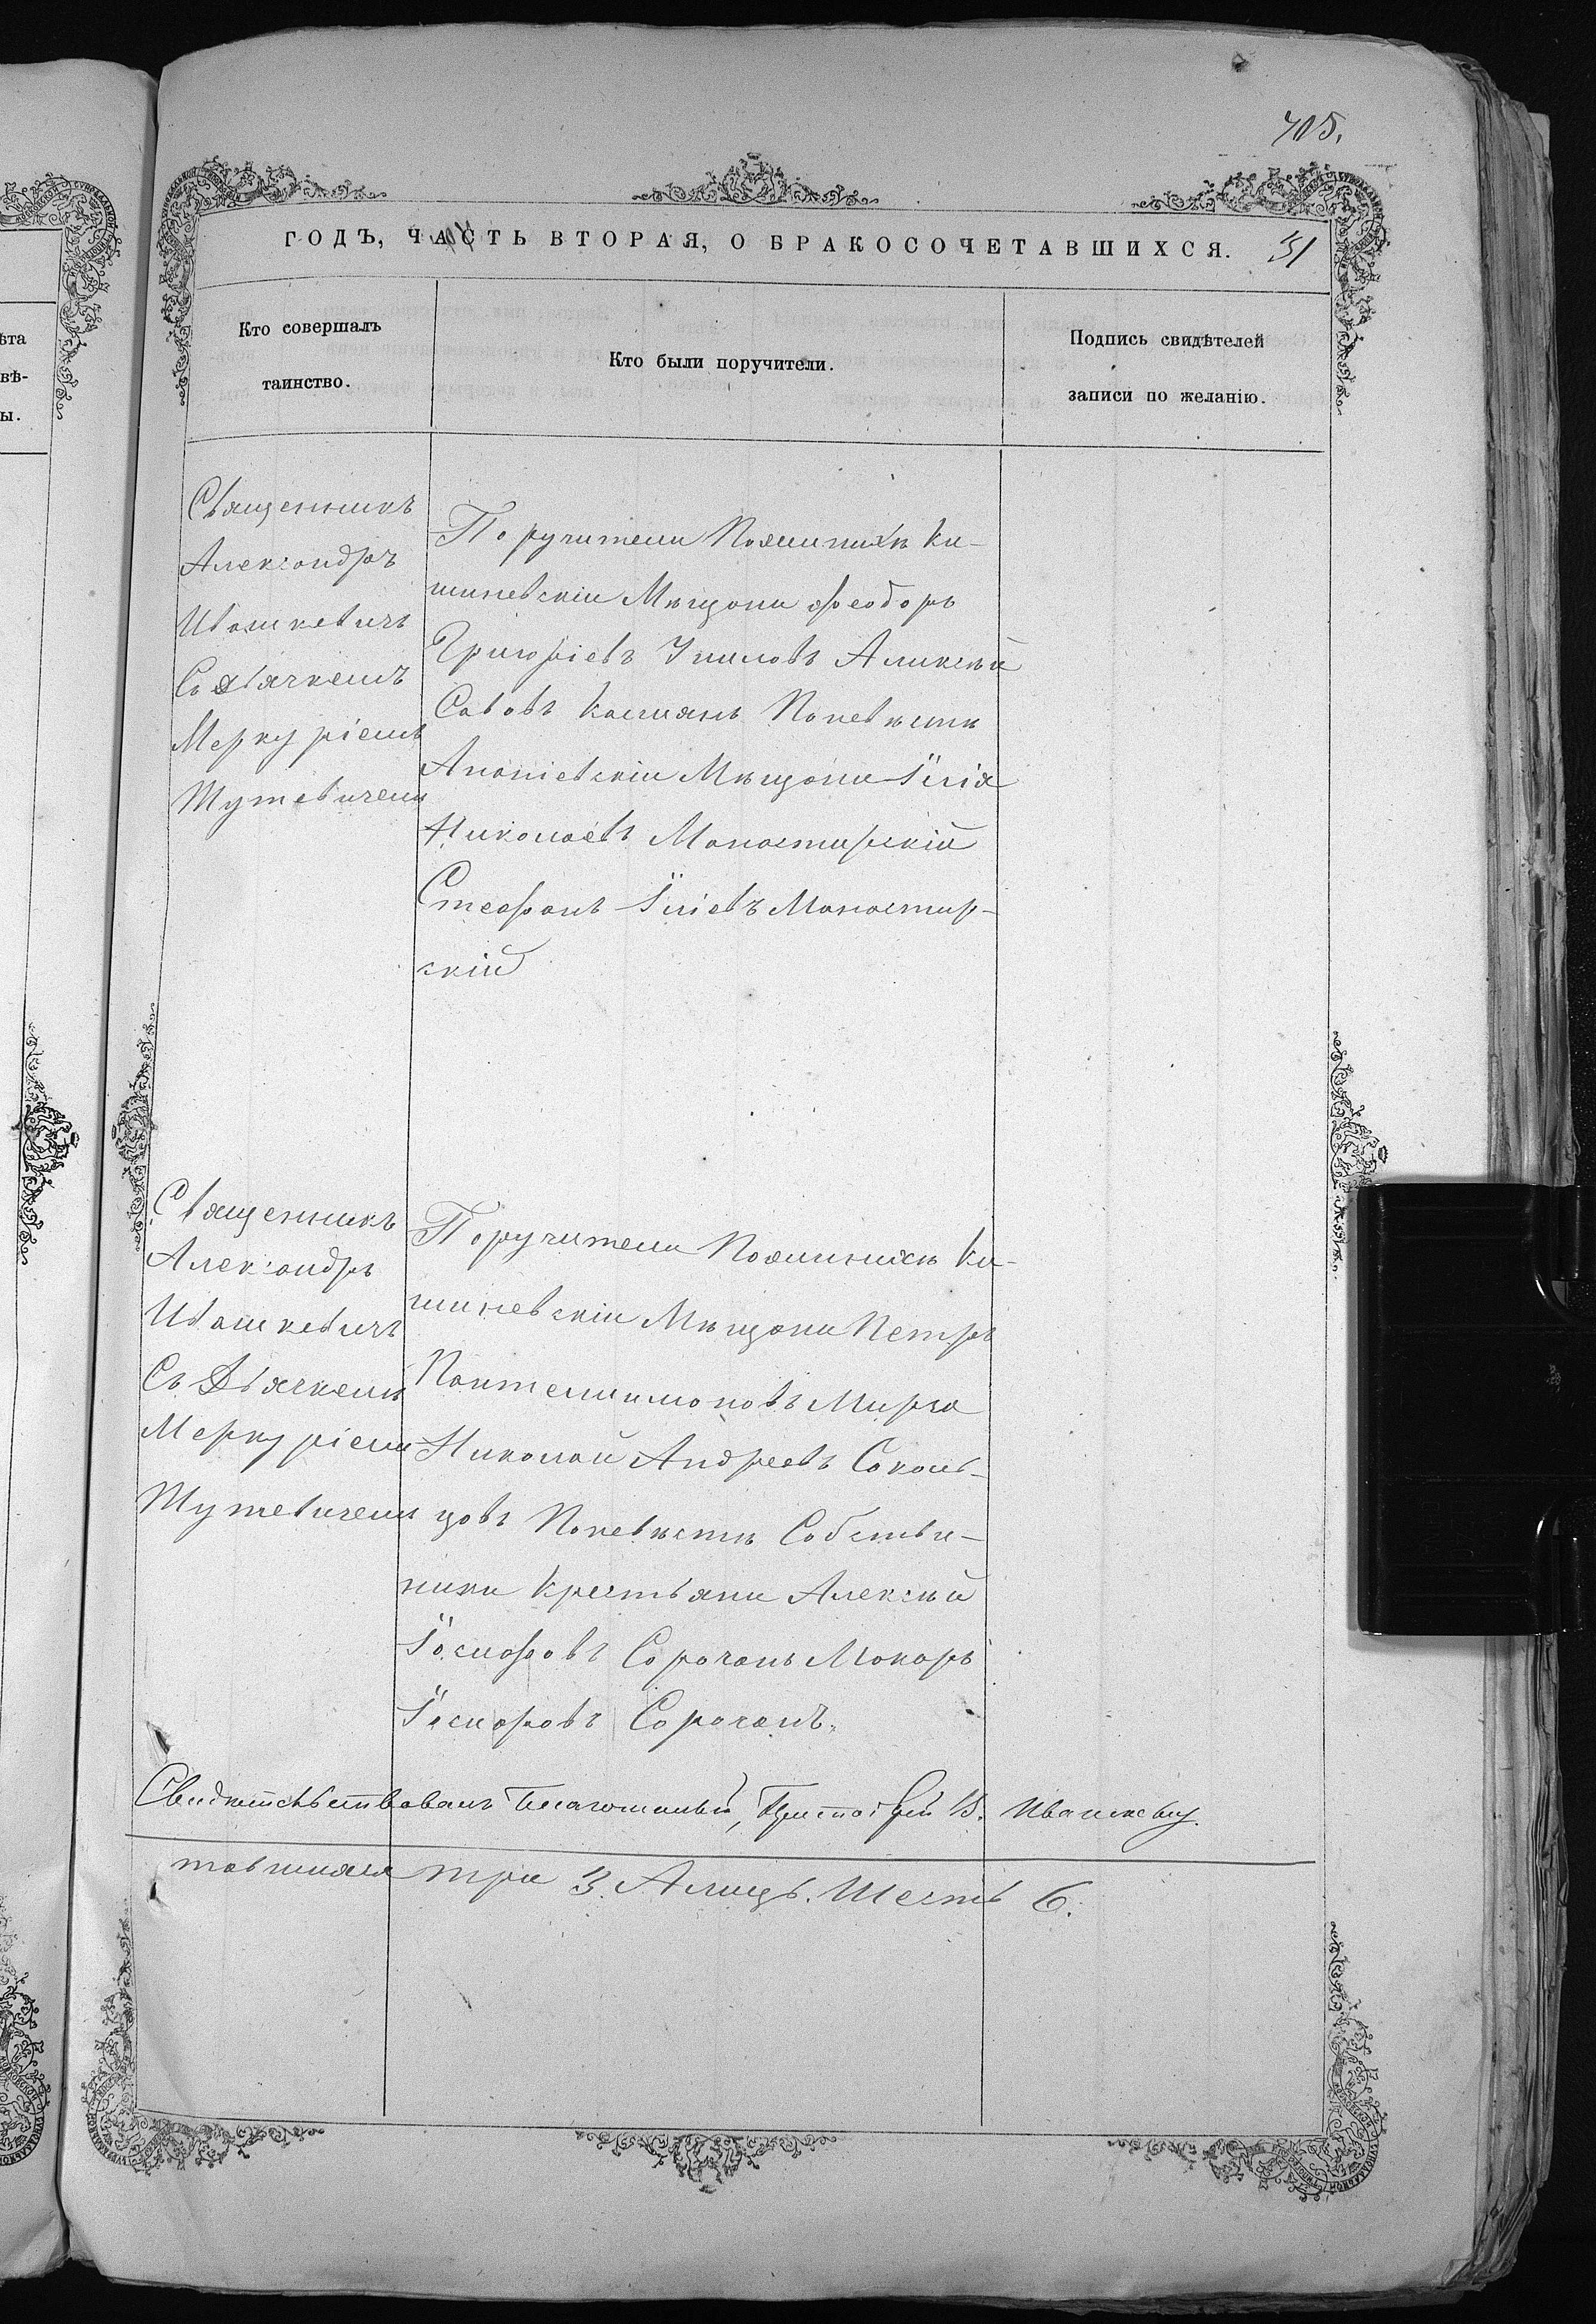 705.
ГОДЪ, ЧАСТЬ ВТОРАЯ, О БРАКОСОЧЕТАВШИХСЯ. 51
Кто совершалъ
таинство.
Кто были поручители.
Подпись свидѣтелей
записи по желанію.
Священникъ
Александръ
Ивашкевичъ
Съ Дьячкемъ
Меркуріемъ
Тутевичемъ
Поручители По женихѣ Ки-
шиневскіи Мѣщани Феодоръ
Григоріевъ Аликсѣй
Савовъ Касиянъ По невѣсти
Ананіевскіи Мѣщани Їлія
Николаевъ Монастирскій
Стефанъ Їліевъ Монастир-
скій
Священникъ
Александръ
Ивашкевичъ
Съ Дьячкемъ
Меркуріемъ
Тутевичемъ
Поручители По женихѣ Ки-
шиневскіи Мѣщани Петръ
Пантелимоновъ Мирза
Николай Андреевъ Соколь-
цовъ По невѣсти Собстве-
ники Крестьяни Алексѣй
Їосифовъ Сорочанъ Макаръ
Їосифовъ Сорочанъ.
Свидѣтельствовалъ Благочинный, Протоіерей
тавшихся три 3. А лицъ. Шесть 6.
ѣта
вѣ-
ы.